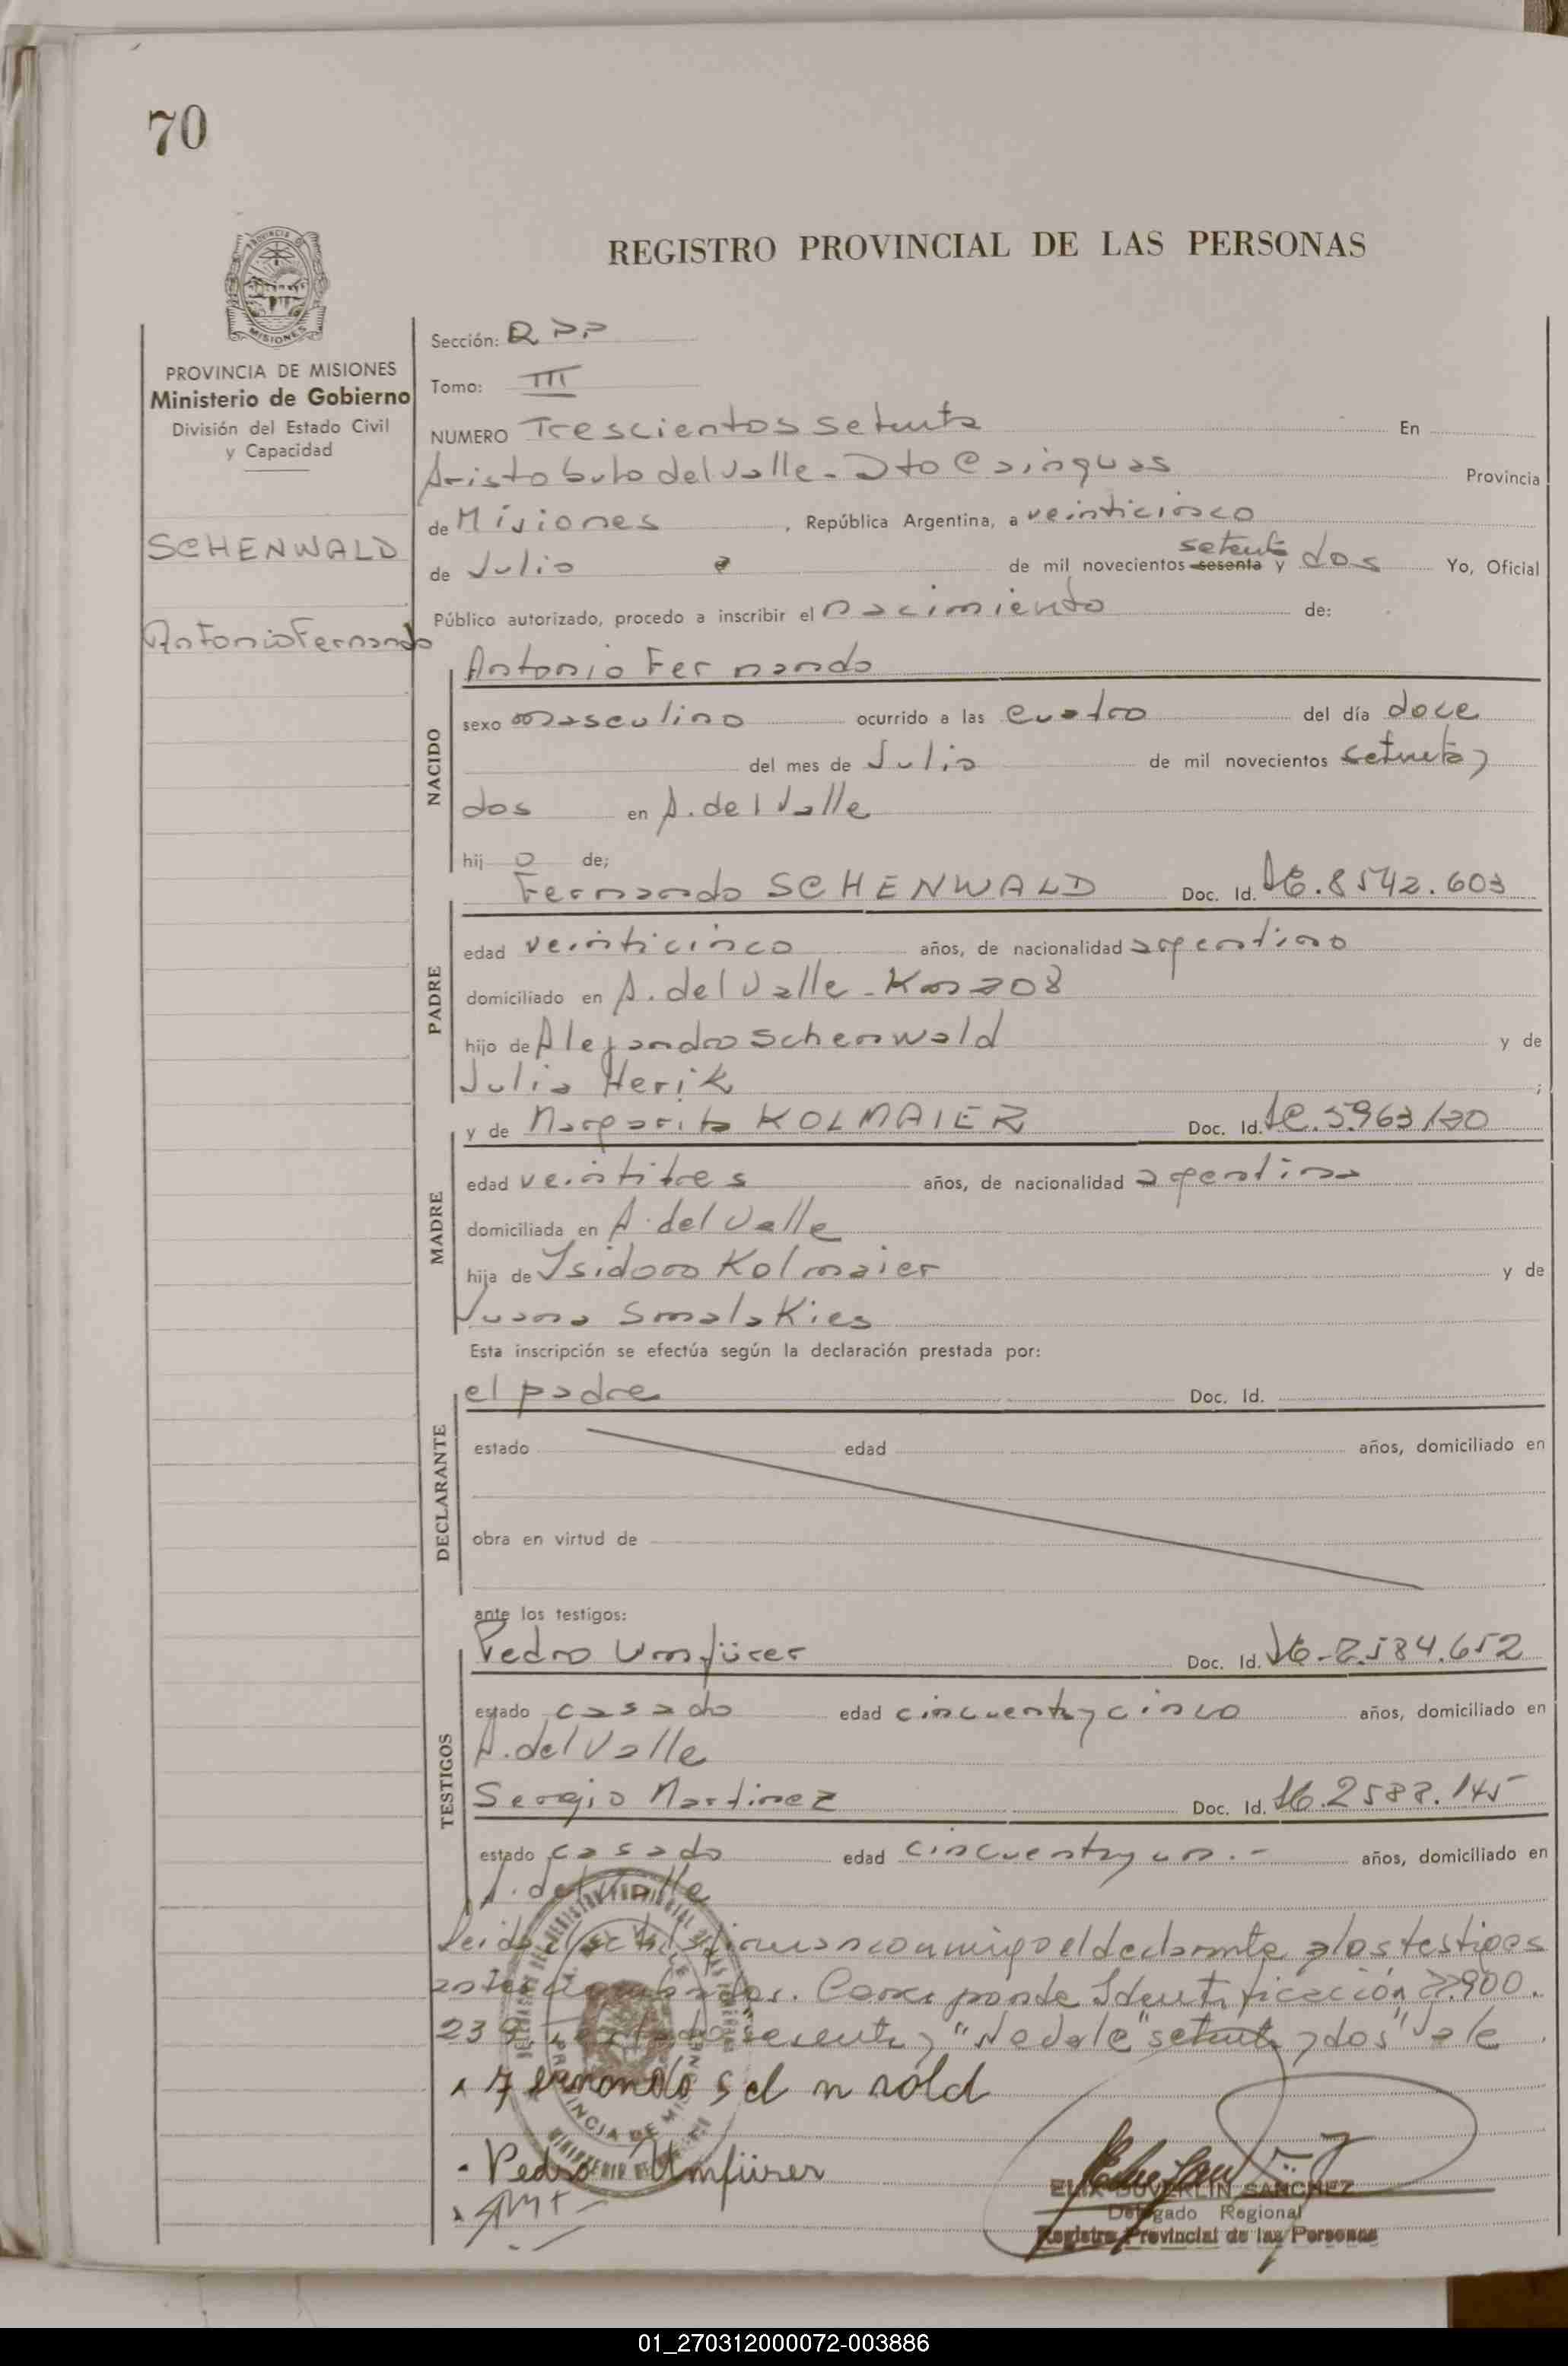 70
REGISTRO PROVINCIAL DE LAS PERSONAS
PROVINCIA DE MISIONES
Ministerio de Gobierno
División del Estado Civil
y Capacidad
SCHENWALD
Antonio Fernando
Sección:
Tomo: III
NUMERO Trescientos setenta En
Aristobulo del Valle - Dto Cainguas Provincia
de Misiones, República Argentina, a veinticinco
setenta
de Julio de mil novecientos sesenta y dos Yo, Oficial
Público autorizado, procedo a inscribir el nacimiento de:
NACIDO
Antonio Fernando
sexo masculino ocurrido a las cuatro del día doce
del mes de Julio de mil novecientos setenta y
dos en A. del Valle
hijo de;
PADRE
Fernando SCHENWALD Doc. Id. 8542.603
edad veinticinco años, de nacionalidad argentino
domiciliado en A. del Valle - Km 208
hijo de Alejandro Schenwald y de
Julia Herik ;
MADRE
y de Margarita KOLMAIER Doc. Id.
edad veintitres años, de nacionalidad argentina
domiciliada en A. del Valle
hija de Isidoro Kolmaier y de
Juana Smalakies
Esta inscripción se efectúa según la declaración prestada por:
DECLARANTE
el padre Doc. Id.
estado edad años, domiciliado en
obra en virtud de
ante los testigos:
TESTIGOS
Pedro Umfürer Doc. Id.
estado casado edad cincuenta y cinco años, domiciliado en
A. del Valle
Sergio Martinez Doc. Id.
estado casado edad cincuenta y un.- años, domiciliado en
A. del Valle
Leida el acta la firman conmigo el declarante y los testigos
antes nombrados. Corresponde Identificación 22.900.
239. sesenta y "No vale" setenta y dos" Vale
Fernando
Pedro Umfürer
ELIX DUVERLIN SANCHEZ
Delegado Regional
Registro Provincial de las Personas
01_270312000072-003886